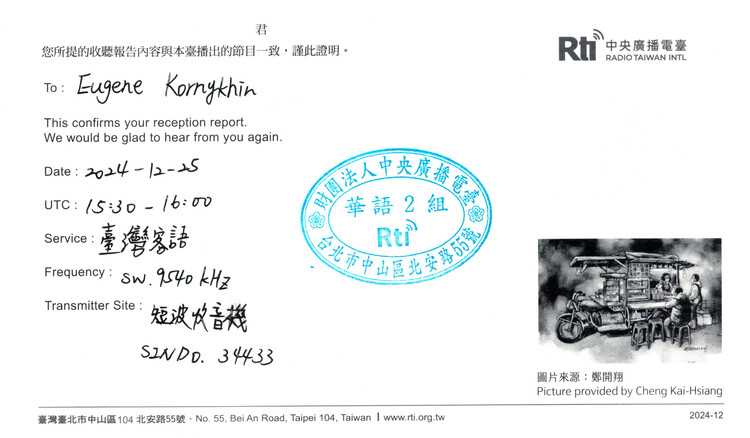 君
您所提的收聽報告內容與本臺播出的節目一致，謹此證明。
Rti 中央廣播電臺
RADIO TAIWAN INTL
To : Eugene Kornykhin
This confirms your reception report.
We would be glad to hear from you again.
Date : 2024-12-25
UTC : 15:30 - 16:00
Service : 臺灣客語
Frequency : SW. 9540 kHz
Transmitter Site : 短波收音機
SINDO. 34433
財團法人中央廣播電臺
華語2組
Rti
台北市中山區北安路55號
圖片來源：鄭開翔
Picture provided by Cheng Kai-Hsiang
臺灣臺北市中山區104 北安路55號・No. 55, Bei An Road, Taipei 104, Taiwan | www.rti.org.tw
2024-12